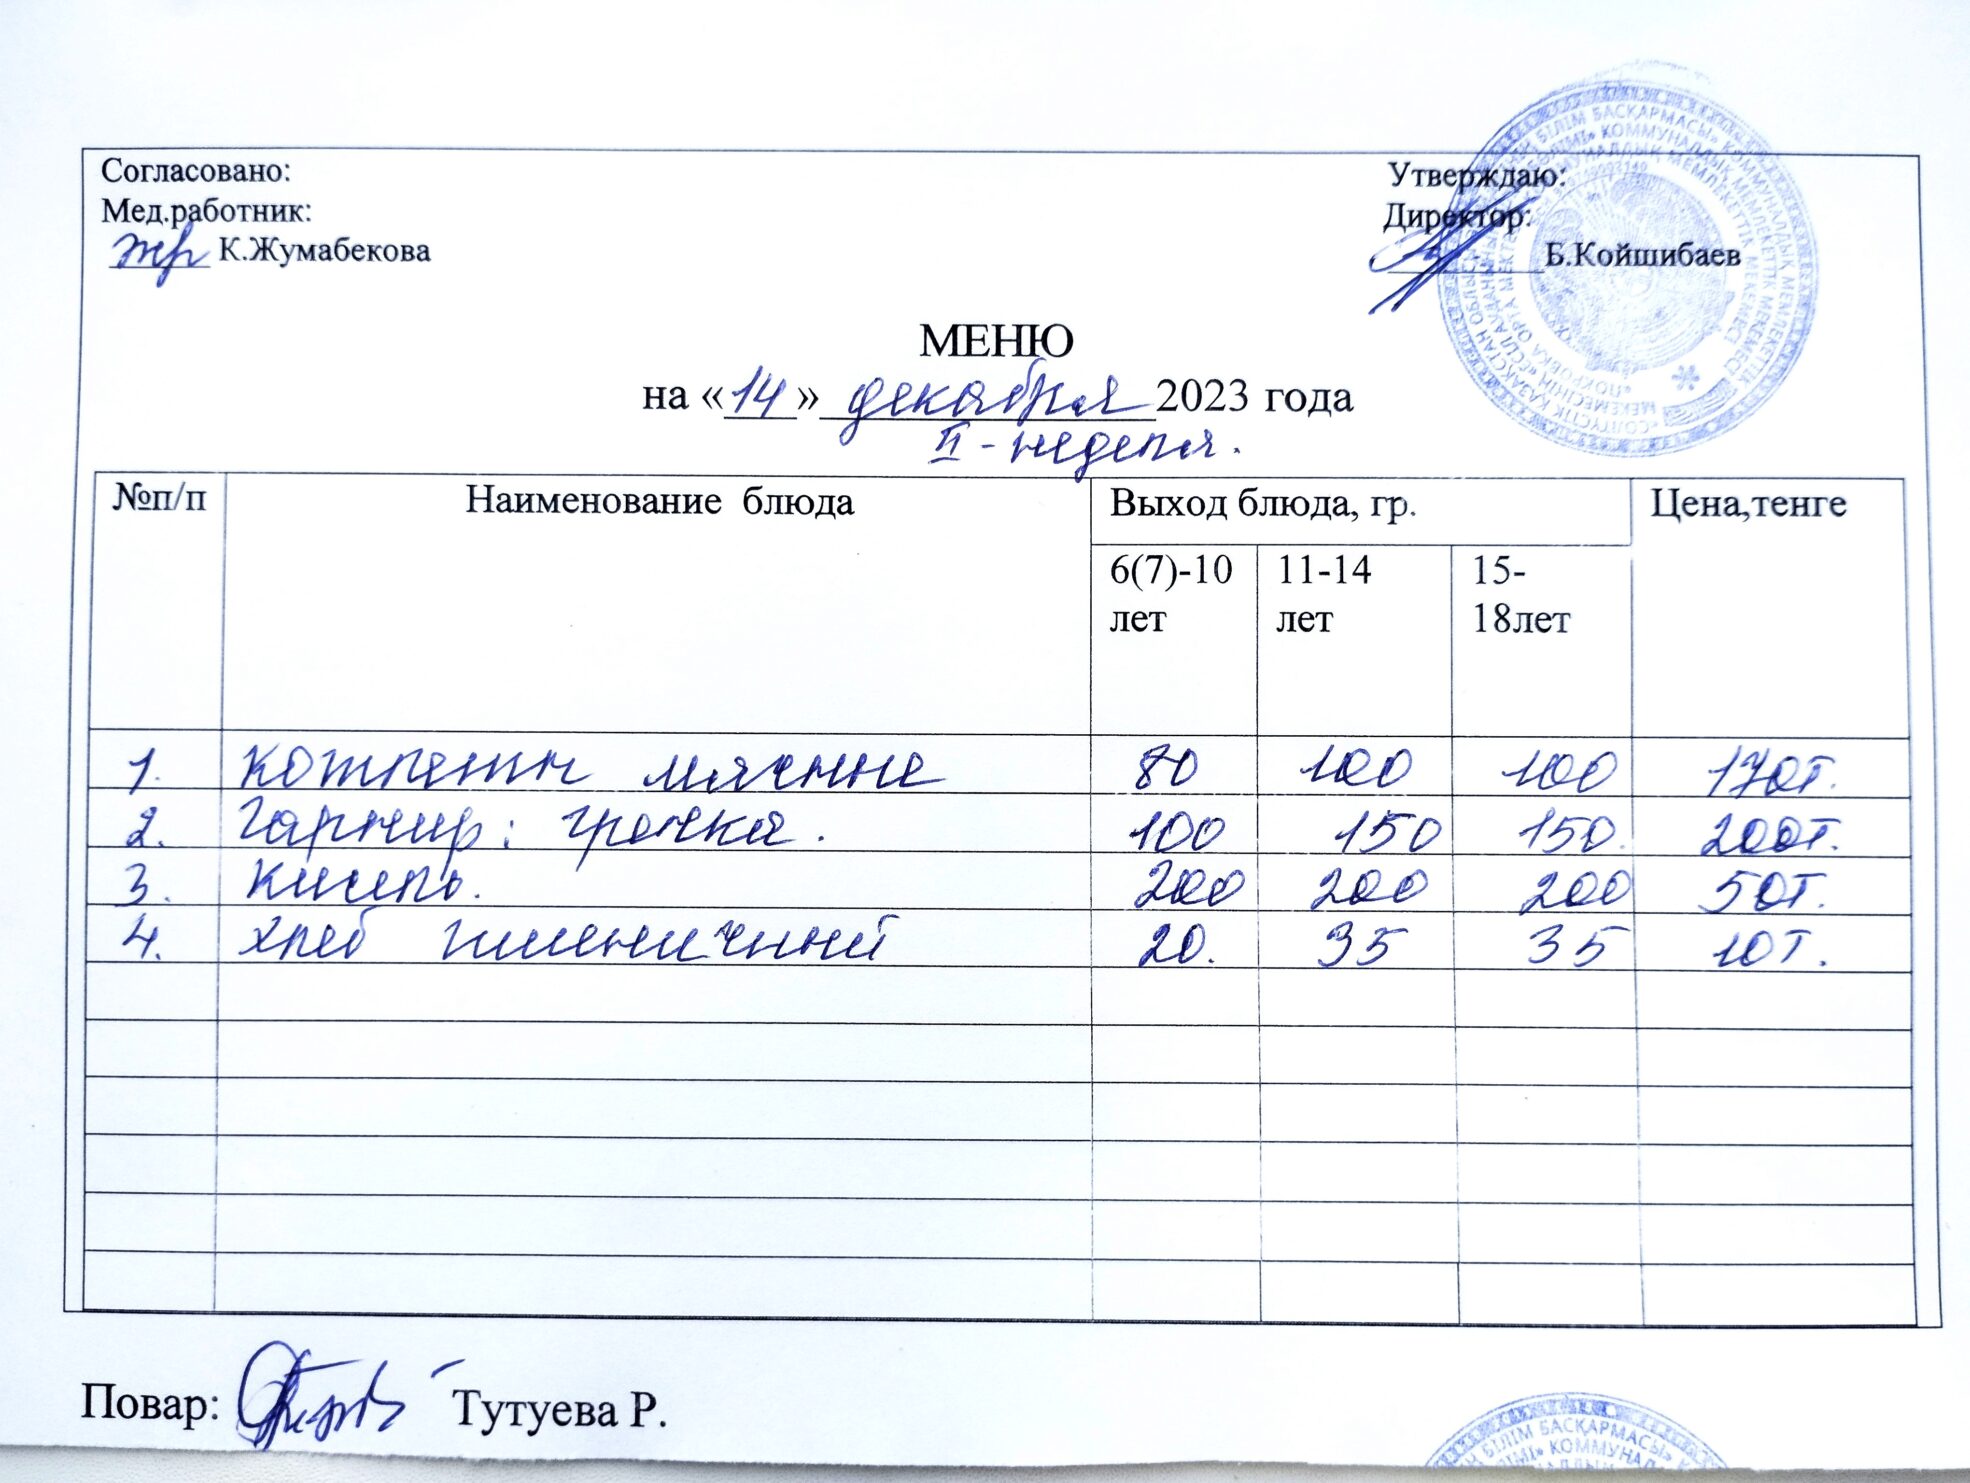 Согласовано:
Утверждаю:
Мед.работник:
Директор:
К.Жумабекова
Б.Койшибаев
МЕНЮ
на «14» декабря 2023 года
II - неделя.
№п/п Наименование блюда Выход блюда, гр. Цена,тенге
6(7)-10 лет 11-14 лет 15-18лет
1. Котлеты мясные 80 100 100 170т.
2. Гарнир: гречка. 100 150 150. 200т.
3. Кисель. 200 200 200 50т.
4. хлеб пшеничный 20. 35 35 10т.
Повар: Тутуева Р.